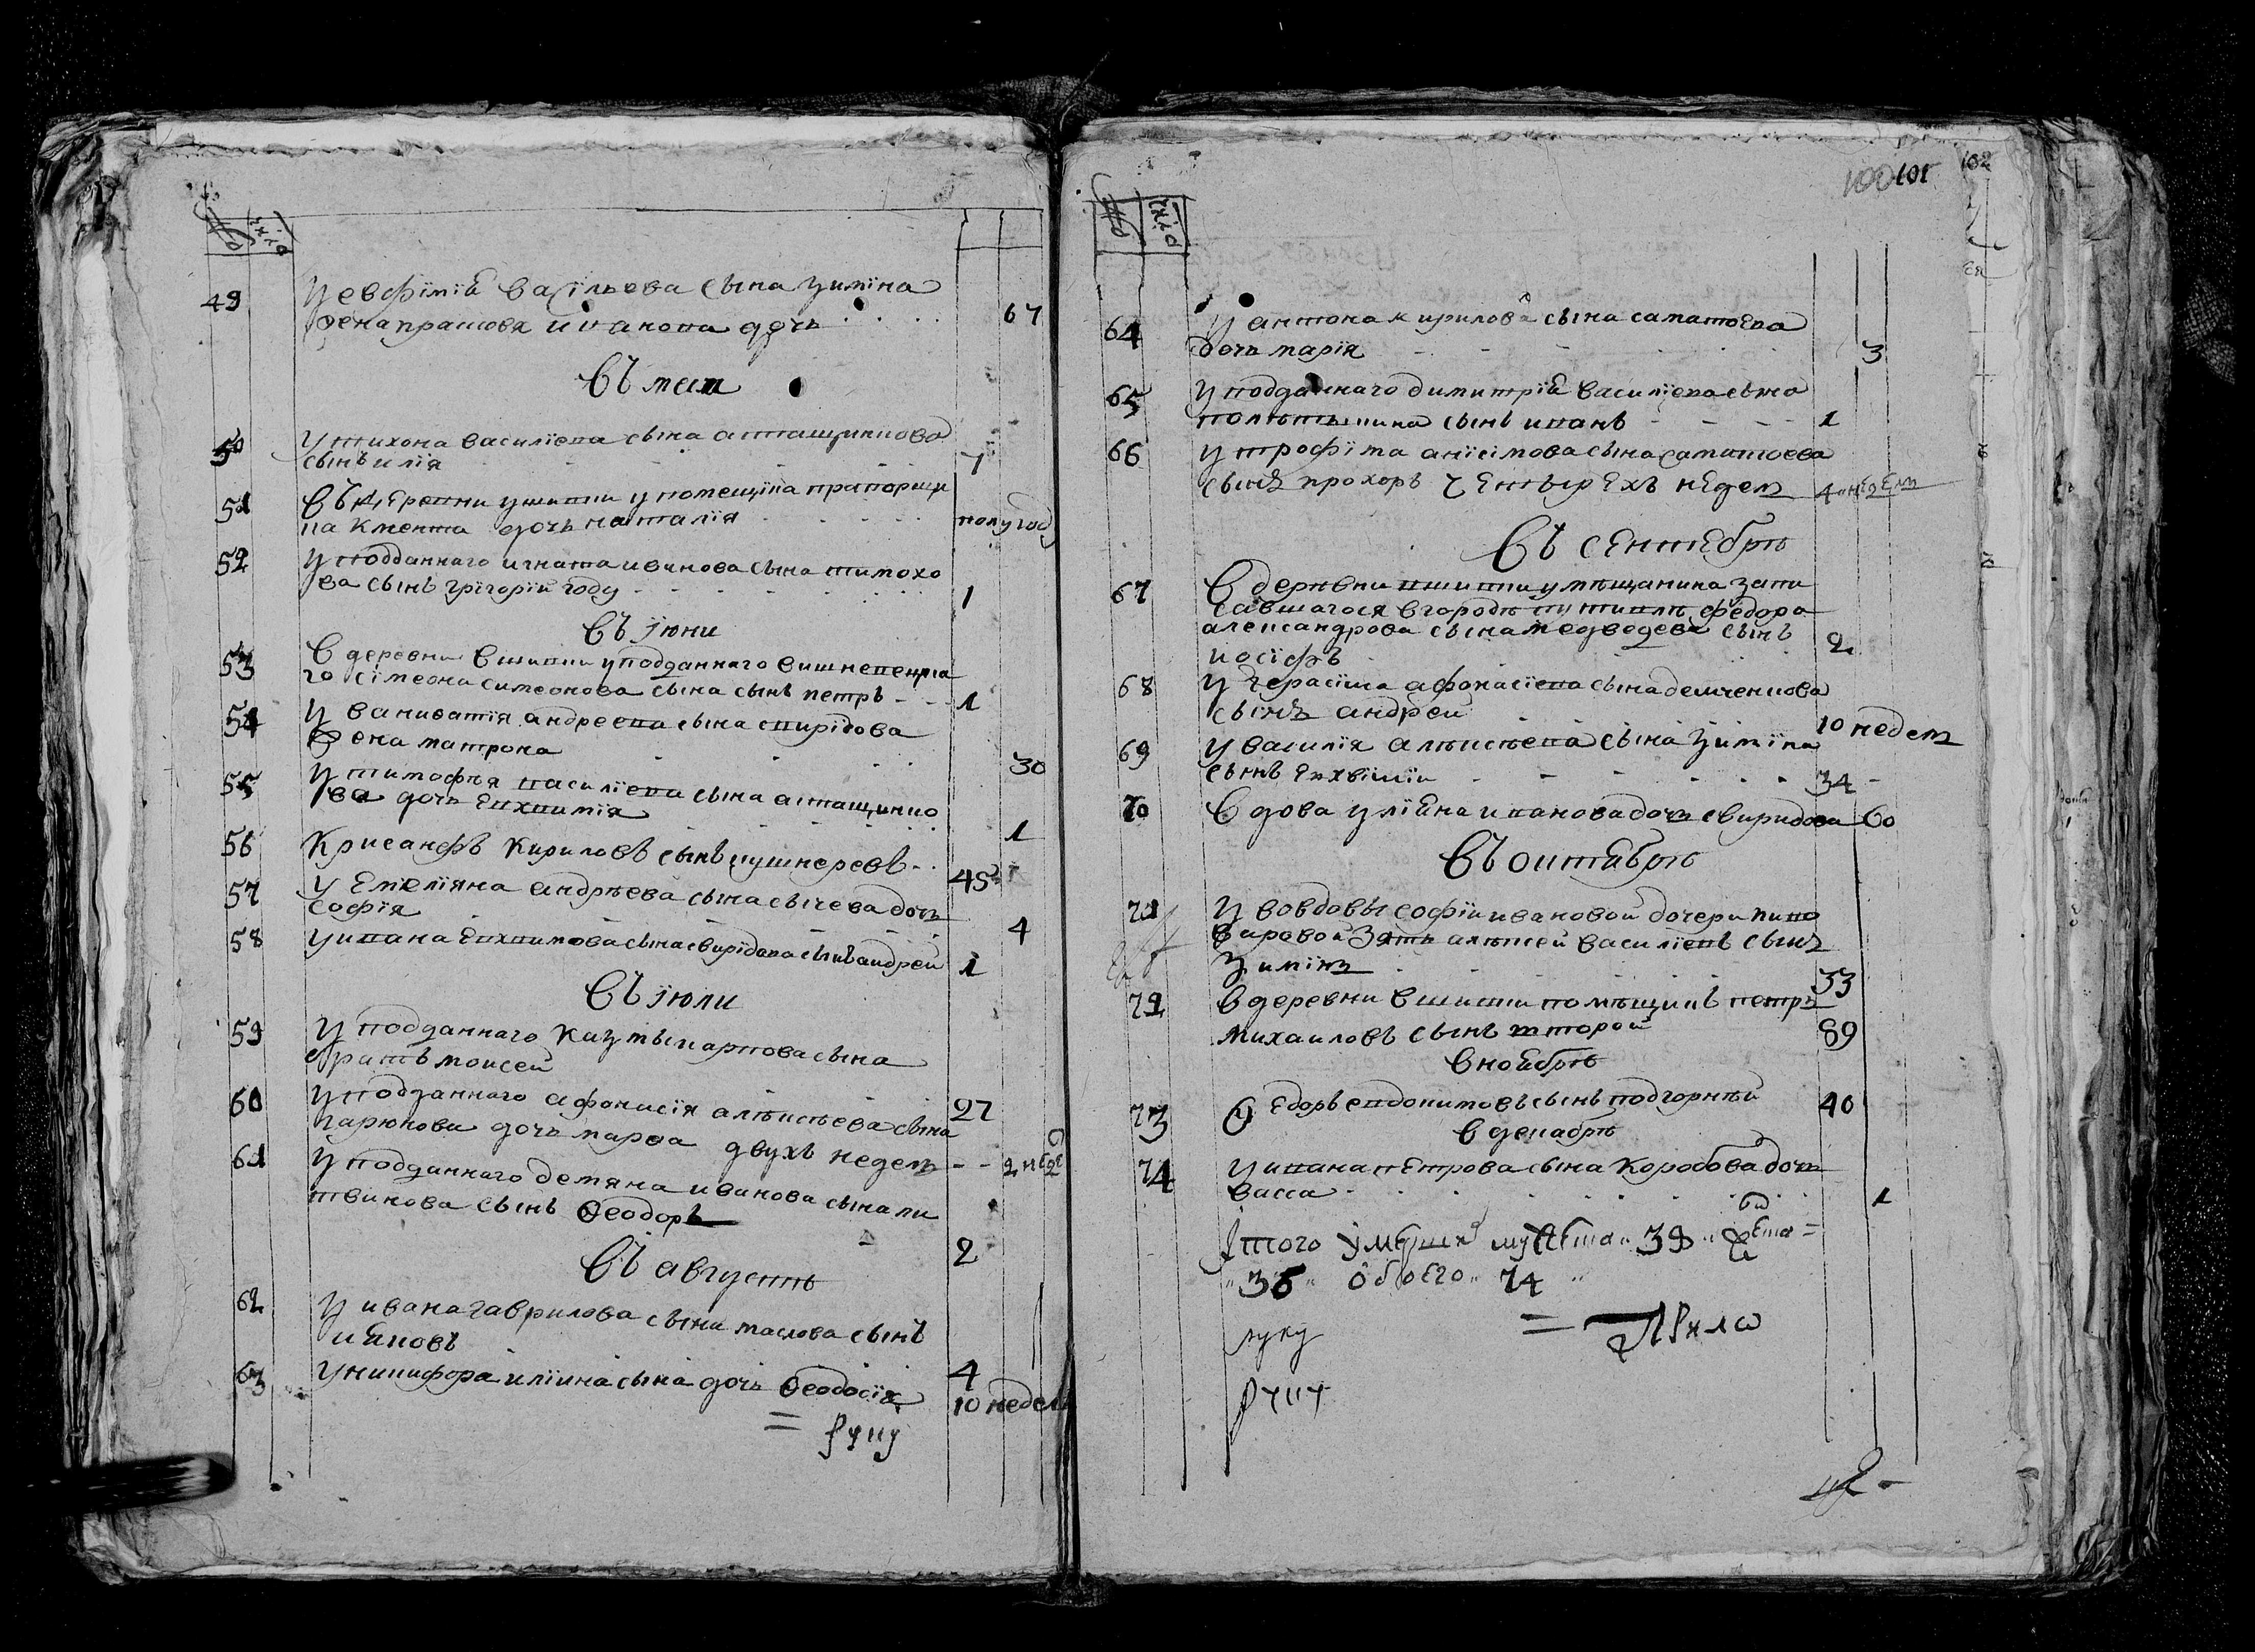 49 У евфімія васільева сына зиміна
жена праскова иванова дочь 67
Въ маи
50 У тихона василіева сына асташинкова
сынъ илія 1
51 Въ деревни ушивки у помещіка прапорщи
ка дочь наталія полугод
52 У подданнаго игната иванова сына тимохо
ва сынъ грігорій году 1
Въ іюни
53 В деревни вшивки уподданнаго вишневецка
го сімеона симеонова сына сынъ петръ 1
54 У андреева сына спирідова
жена матрона 30
55 У тимофѣя василіева сына асташинко
ва дочь евхимія 1
56 Крисанфъ кириловъ сынъ кушнеревъ 45
57 У Емеліяна андрѣева сына сычева дочь
софія 4
58 У ивана евхимова сына свирідова сынъ андрей 1
Въ іюли
59 У подданнаго казмы карпова сына
братъ моисей 27
60 У подданнаго афонасія алѣксѣева сына
дочь марѳа двухъ недель 2 неде
61 У подданнаго демяна иванова сына ли
твинова сынъ Ѳеодоръ 2
Въ августѣ
62 У ивана гаврилова сына маслова сынъ
иаковъ 4
63 У никифора иліина сына дочь Ѳеодосія 10 недель
= руку
100 101 102
64 У антона кирилова сына саматоева
дочь марія 3
65 У подданнаго димитрія василіева сына
сынъ иванъ 1
66 У трофіма анісімова сына саматоева
сынъ прохоръ четырехъ недел 4 недели
Въ сентебрѣ
67 В деревни вшивки у мѣщанина запи
савшагося в городѣ путивлѣ федора
александрова сына медведева сынъ
иосіфъ 2
68 У герасіма афонасіева сына демченкова
сынъ андрей 10 недел
69 У василія алѣксѣева сына зиміна
сынъ евхвімій 34
70 Вдова уліяна иванова дочь свиридова 60
Въ октябрѣ
71 У вовдовы софіи ивановой дочери пиво
варовой зять алѣксей василіевъ сынъ
зимінъ 33
72 В деревни вшивки помѣщикъ петръ
михаиловъ сынъ второй 89
в ноябрѣ
73 Ѳедоръ евдокимовъ сынъ подгорнѣй 40
в декабрѣ
74 У ивана петрова сына коробова дочь
васса 1
Ітого умерших мужеска 39
35 обоего 74
руку